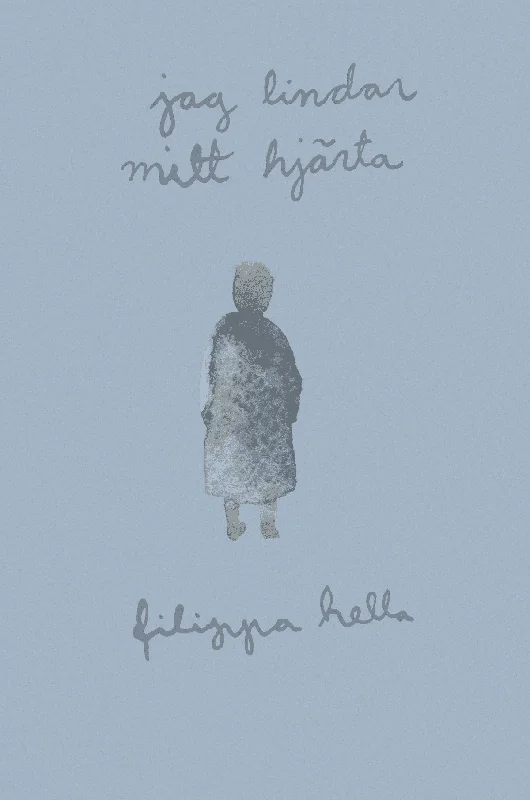 jag lindar
mitt hjärta
filippa hella